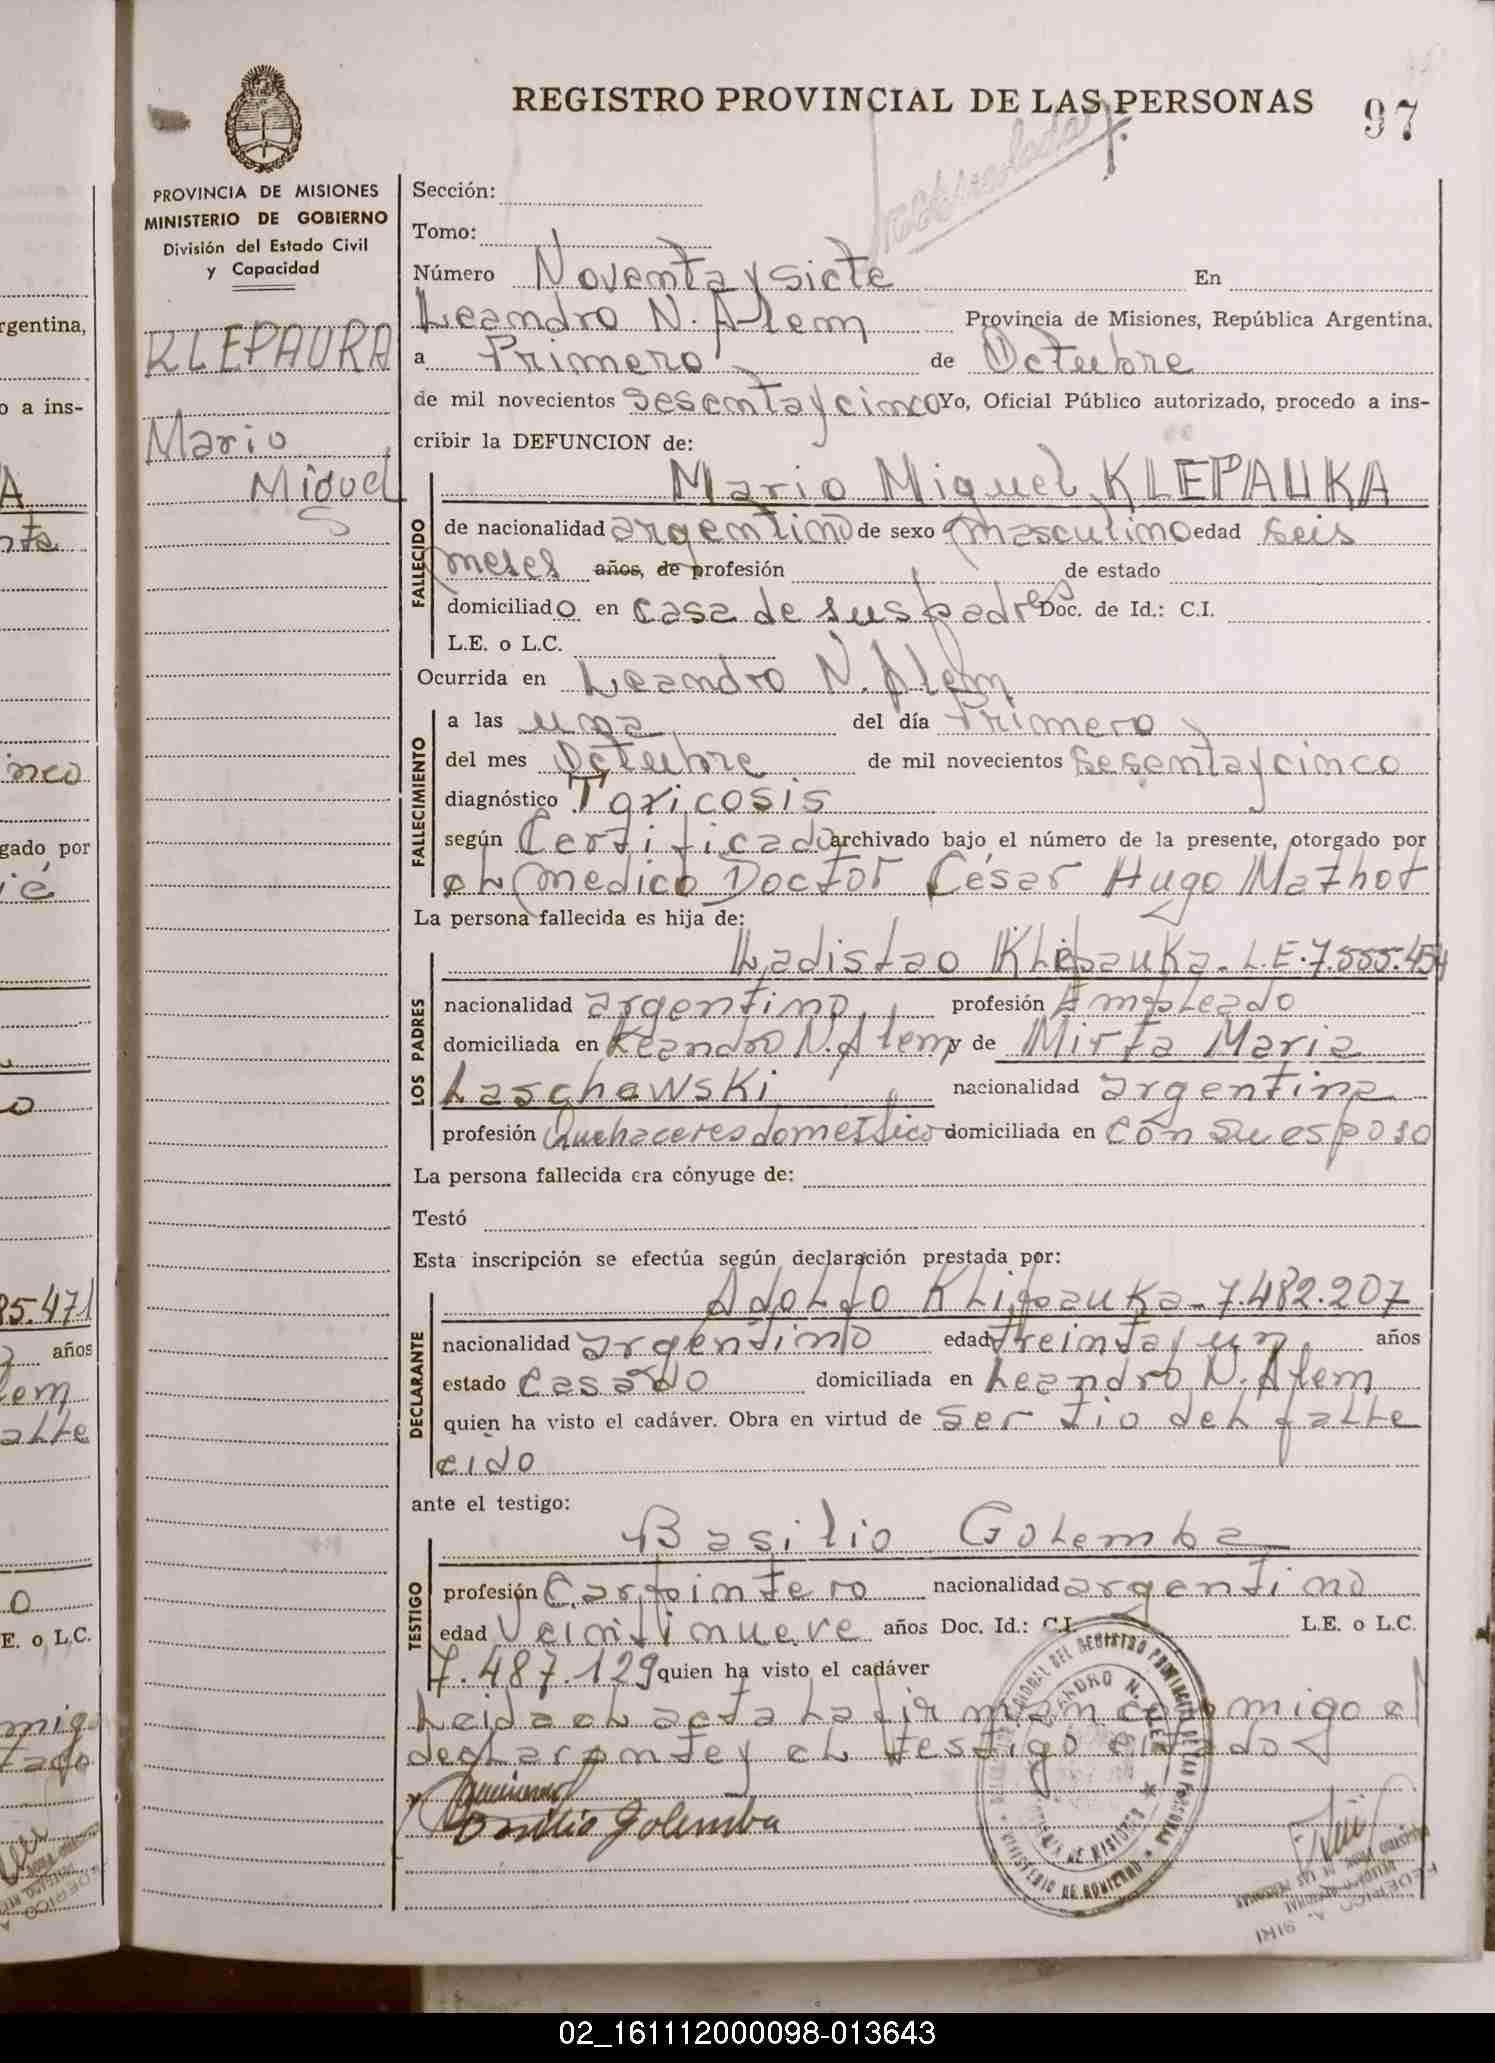 REGISTRO PROVINCIAL DE LAS PERSONAS
97
PROVINCIA DE MISIONES
MINISTERIO DE GOBIERNO
División del Estado Civil
y Capacidad
KLEPAUKA
Mario
Miguel
Sección:
Tomo:
Número Noventa y siete En
Leandro N. Alem Provincia de Misiones, República Argentina,
a Primero de Octubre
de mil novecientos Sesenta y cinco Yo, Oficial Público autorizado, procedo a ins-
cribir la DEFUNCION de:
Mario Miguel KLEPAUKA
FALLECIDO
de nacionalidad argentino de sexo masculino edad seis
meses años, de profesión de estado
domiciliado en casa de sus padres Doc. de Id.: C.I.
L.E. o L.C.
Ocurrida en Leandro N. Alem
FALLECIMIENTO
a las una del día Primero
del mes Octubre de mil novecientos Sesenta y cinco
diagnóstico Toxicosis
según Certificado archivado bajo el número de la presente, otorgado por
el medico Doctor César Hugo Mathot
La persona fallecida es hija de:
LOS PADRES
Ladislao Klepauka - L.E. 7.555.454
nacionalidad argentino profesión Empleado
domiciliada en Leandro N. Alem y de Mirta Maria
Laschewski nacionalidad argentina
profesión Quehaceres domestico domiciliada en con su esposo
La persona fallecida era cónyuge de:
Testó
Esta inscripción se efectúa según declaración prestada por:
DECLARANTE
Adolfo Klipauka - 7.482.207
nacionalidad argentino edad treinta y un años
estado Casado domiciliada en Leandro N. Alem
quien ha visto el cadáver. Obra en virtud de ser tio del falle
cido
ante el testigo:
TESTIGO
Basilio Golemba
profesión Carpintero nacionalidad argentino
edad Veintinueve años Doc. Id.: C.I. L.E. o L.C.
7.487.129 quien ha visto el cadáver
Leida el acta la firman conmigo el
declarante y el testigo citado
Basilio Golemba
LEANDRO N. ALEM
MINISTERIO DE GOBIERNO
FEDERICO A. SIRI
rgentina,
o a ins-
A
inco
gado por
35.471
años
lem
alle
E. o L.C.
02_161112000098-013643